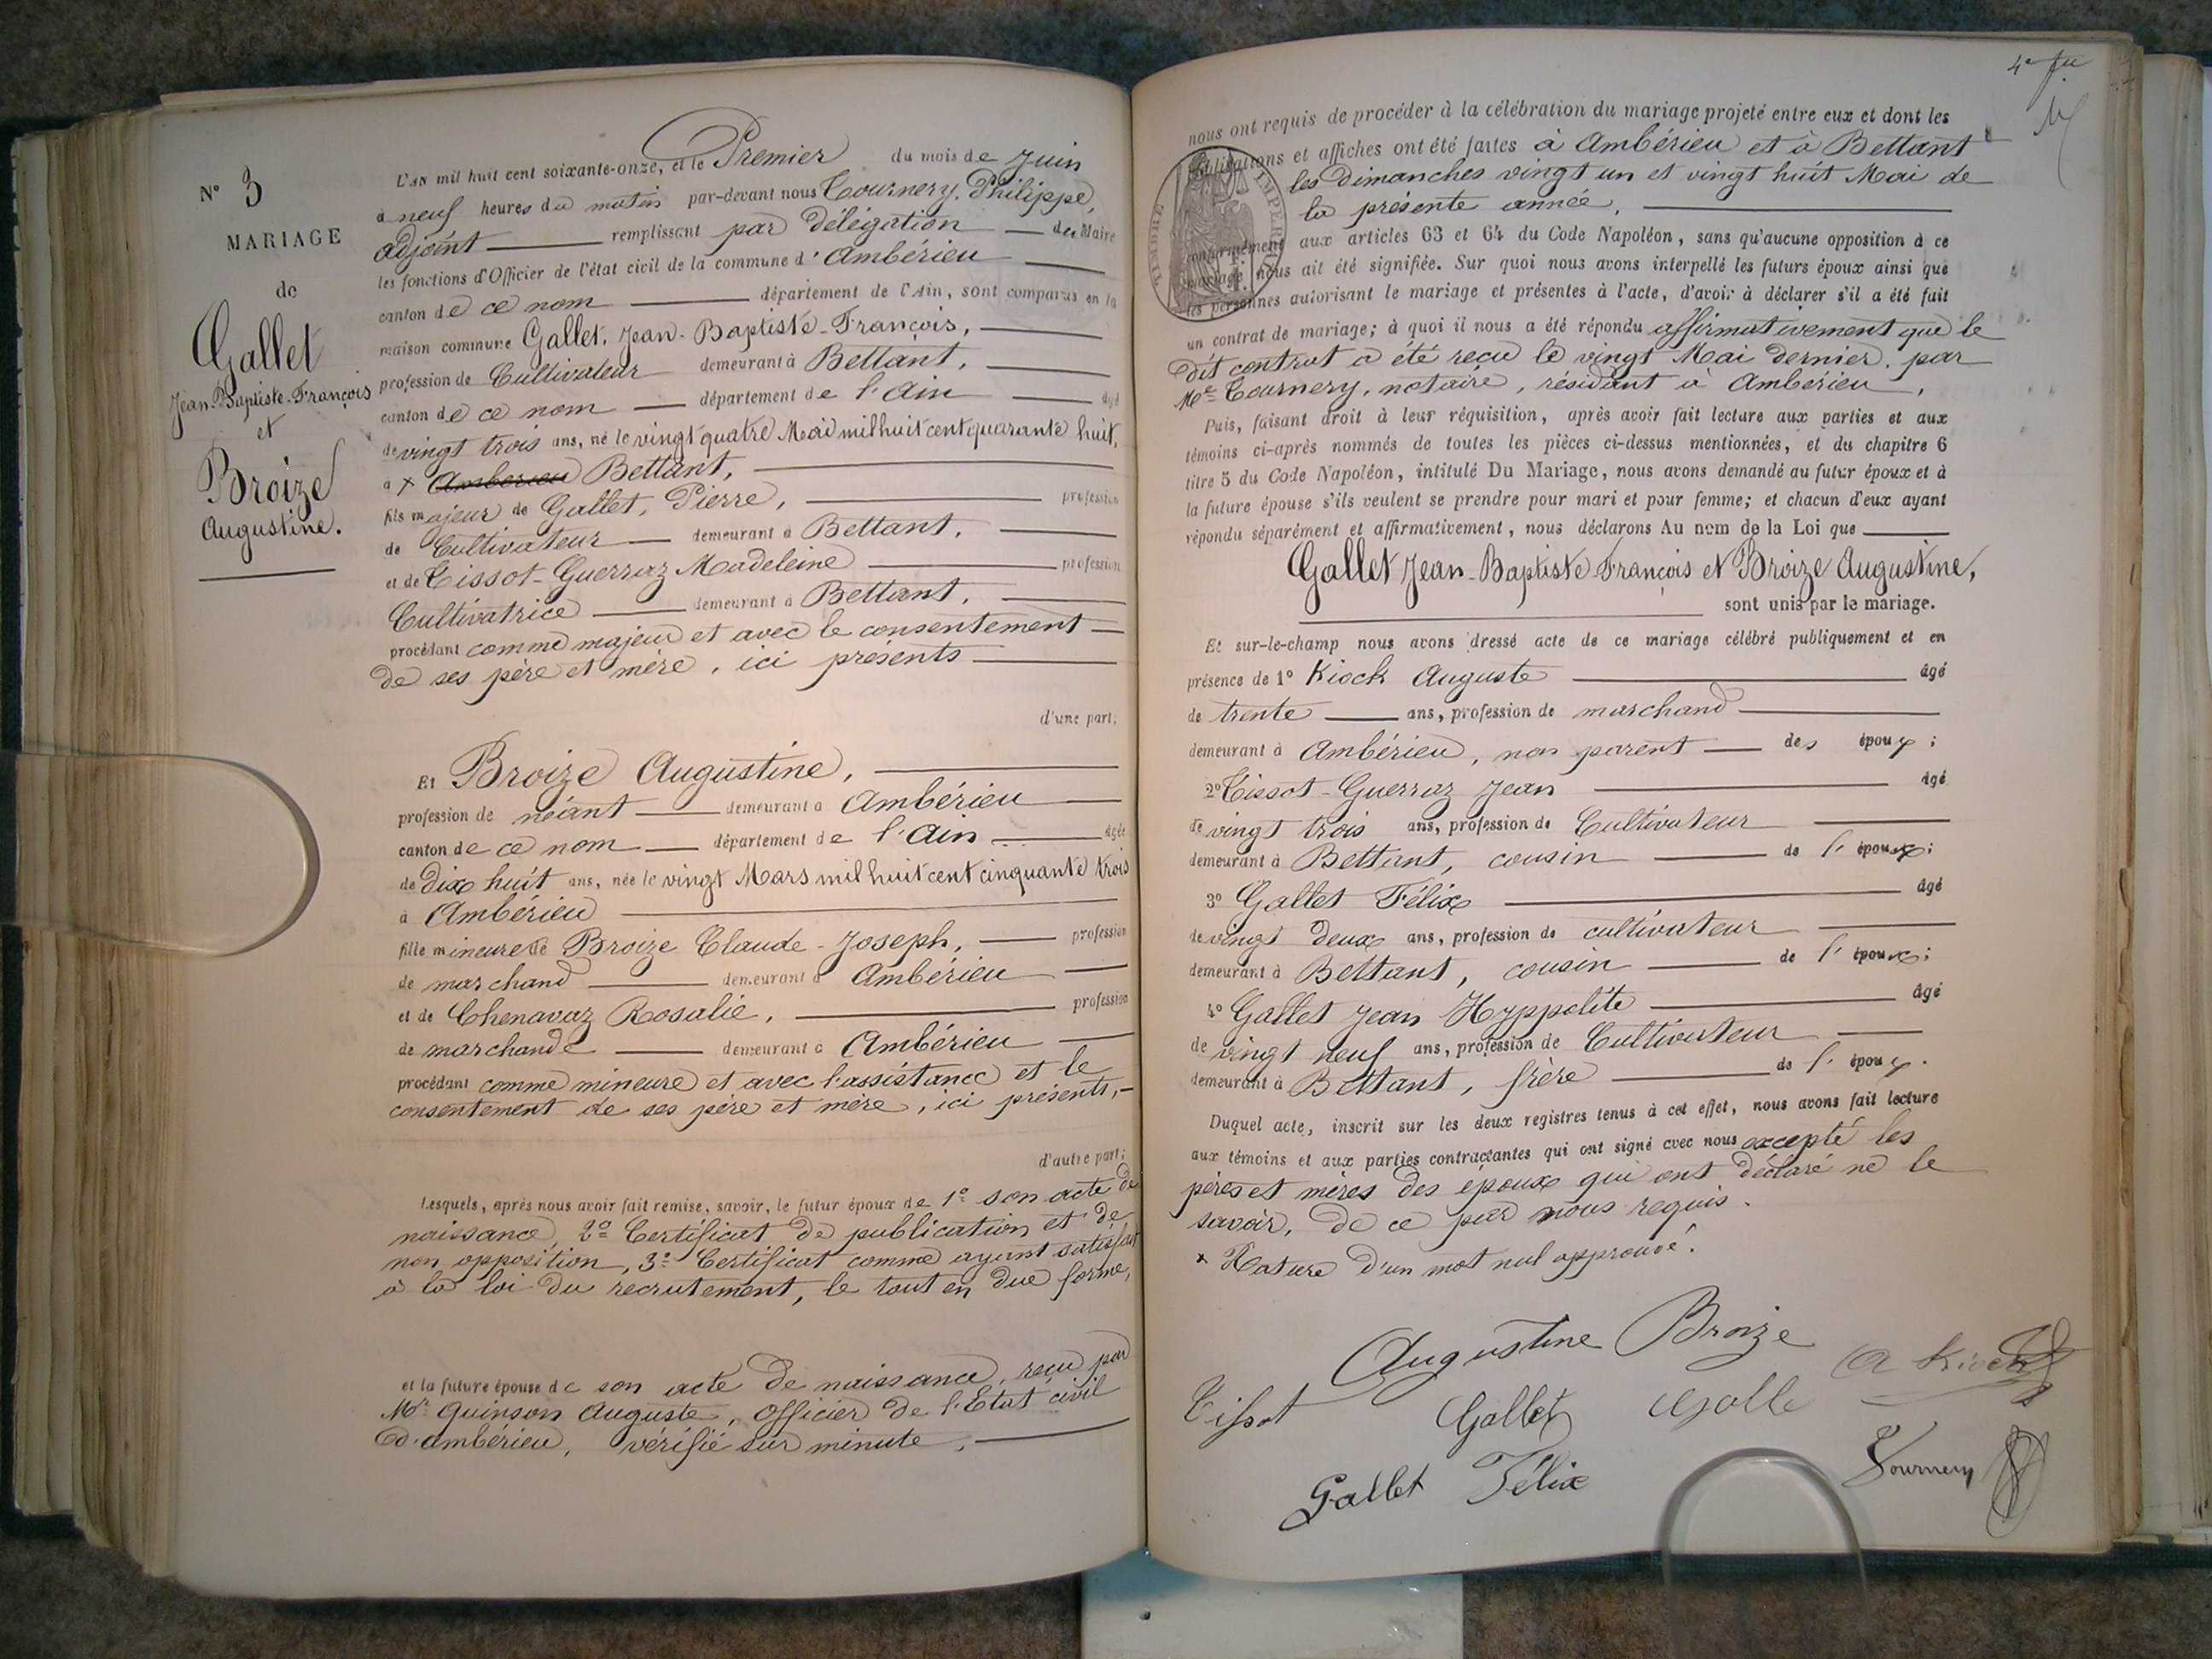 N° 3
MARIAGE
de
Gallet
Jean-Baptiste-François
et
Broize
Augustine.
L'AN mil huit cent soixante-onze, et le Premier du mois de Juin
à neuf heures du matin par-devant nous Tournery, Philippe,
adjoint remplissant par délégation des Maire
les fonctions d'Officier de l'état civil de la commune d'Ambérieu
canton de ce nom département de l'Ain, sont comparus en la
maison commune Gallet, Jean-Baptiste-François,
profession de Cultivateur demeurant à Bettant,
canton de ce nom département de l'Ain âgé
de vingt trois ans, né le vingt quatre Mai mil huit cent quarante huit,
à x Amberieu Bettant,
fils majeur de Gallet, Pierre, profession
de Cultivateur demeurant à Bettant,
et de Tissot-Guerraz Madeleine profession
Cultivatrice demeurant à Bettant,
procédant comme majeur et avec le consentement
de ses père et mère, ici présents
d'une part;
Et Broize Augustine,
profession de néant demeurant à Ambérieu
canton de ce nom département de l'Ain âgée
de Dix huit ans, née le vingt Mars mil huit cent cinquante trois
à Ambérieu
fille mineure de Broize Claude-Joseph, profession
de marchand demeurant à Ambérieu
et de Chenavaz Rosalie, profession
de marchande demeurant à Ambérieu
procédant comme mineure et avec l'assistance et le
consentement de ses père et mère, ici présents,
d'autre part;
Lesquels, après nous avoir fait remise, savoir, le futur époux de 1° son acte de
naissance, 2° Certificat de publication et de
non opposition, 3° Certificat comme ayant satisfait
à la loi du recrutement, le tout en due forme,
et la future épouse de son acte de naissance, reçu par
Mr Quinson Auguste, Officier de l'Etat civil
d'ambérieu, vérifié sur minute,
4e fu
nous ont requis de procéder à la célébration du mariage projeté entre eux et dont les
publications et affiches ont été faites à Ambérieu et à Bettant
les Dimanches vingt un et vingt huit Mai de
la présente année,
TIMBRE IMPERIAL
conformément aux articles 63 et 64 du Code Napoléon, sans qu'aucune opposition à ce
mariage nous ait été signifiée. Sur quoi nous avons interpellé les futurs époux ainsi que
les personnes autorisant le mariage et présentes à l'acte, d'avoir à déclarer s'il a été fait
un contrat de mariage; à quoi il nous a été répondu affirmativement que le
dit contrat a été reçu le vingt Mai dernier, par
Me Tournery, notaire, résidant à Ambérieu,
Puis, faisant droit à leur réquisition, après avoir fait lecture aux parties et aux
témoins ci-après nommés de toutes les pièces ci-dessus mentionnées, et du chapitre 6
titre 5 du Code Napoléon, intitulé Du Mariage, nous avons demandé au futur époux et à
la future épouse s'ils veulent se prendre pour mari et pour femme; et chacun d'eux ayant
répondu séparément et affirmativement, nous déclarons Au nom de la Loi que
Gallet Jean-Baptiste-François et Broize Augustine,
sont unis par le mariage.
Et sur-le-champ nous avons dressé acte de ce mariage célébré publiquement et en
présence de 1° Kiock Auguste âgé
de trente ans, profession de marchand
demeurant à Ambérieu, non parent des époux;
2° Tissot-Guerraz Jean âgé
de vingt trois ans, profession de Cultivateur
demeurant à Bettant, cousin de l'époux;
3° Gallet Félix âgé
de vingt deux ans, profession de cultivateur
demeurant à Bettant, cousin de l'époux;
4° Gallet Jean Hyppolite âgé
de vingt neuf ans, profession de Cultivateur
demeurant à Bettant, frère de l'époux.
Duquel acte, inscrit sur les deux registres tenus à cet effet, nous avons fait lecture
aux témoins et aux parties contractantes qui ont signé avec nous excepté les
pères et mères des époux qui ont déclaré ne le
savoir, de ce par nous requis.
x Rature d'un mot nul approuvé.
Augustine Broize
A Kiock
Tissot Gallet Galle
Tournery
Gallet Félix